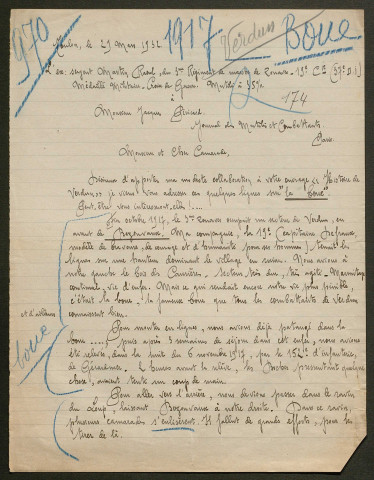 970
1917
Verdun
Boue
Toulon, le 29 Mars 1932
L'ex. sergent Martin Raoul, du 3me Régiment de marche de Zouaves - 19e Cie (37e D.I)
Médaille Militaire. Croix de Guerre. Mutilé à 35%.
174
à
Monsieur Jacques Péricard
Journal des Mutilés et Combattants
Paris.
Monsieur et Cher Camarade,
Désireux d'apporter ma modeste collaboration à votre ouvrage "Histoire de
Verdun", je viens vous adresser ces quelques lignes sur "la boue".
Peut-être vous intéressent-elles !....
Fin octobre 1917, le 3me Zouaves occupait un secteur de Verdun, en
avant de Bezonvaux. Ma compagnie, la 19e (capitaine
modèle de bravoure, de courage et d'humanité pour ses hommes) tenait les
lignes sur une hauteur dominant le village en ruines. Nous avions à
notre gauche le bois des Caurrières, secteur très dur, très agité. Marmitage
continuel, vie d'enfer. Mais ce qui rendait encore notre vie plus pénible,
c'était la boue, la fameuse boue que tous les combattants de Verdun
connurent bien.
et d'ailleurs
boue
Pour monter en lignes, nous avions déjà pataugé dans la
boue .... puis après 3 semaines de séjour dans cet enfer, nous avons
été relevés, dans la nuit du 6 novembre 1917, par le 152e d'infanterie,
de Gérardmer. 2 heures avant la relève, les Boches pressentant quelque
chose, avaient tenté un coup de main.
Pour aller vers l'arrière, nous devions passer dans le ravin
du Loup, laissant Bezonvaux à notre droite. Dans ce ravin,
plusieurs camarades s'enlisèrent. Il fallut de grands efforts, pour les
tirer de là.